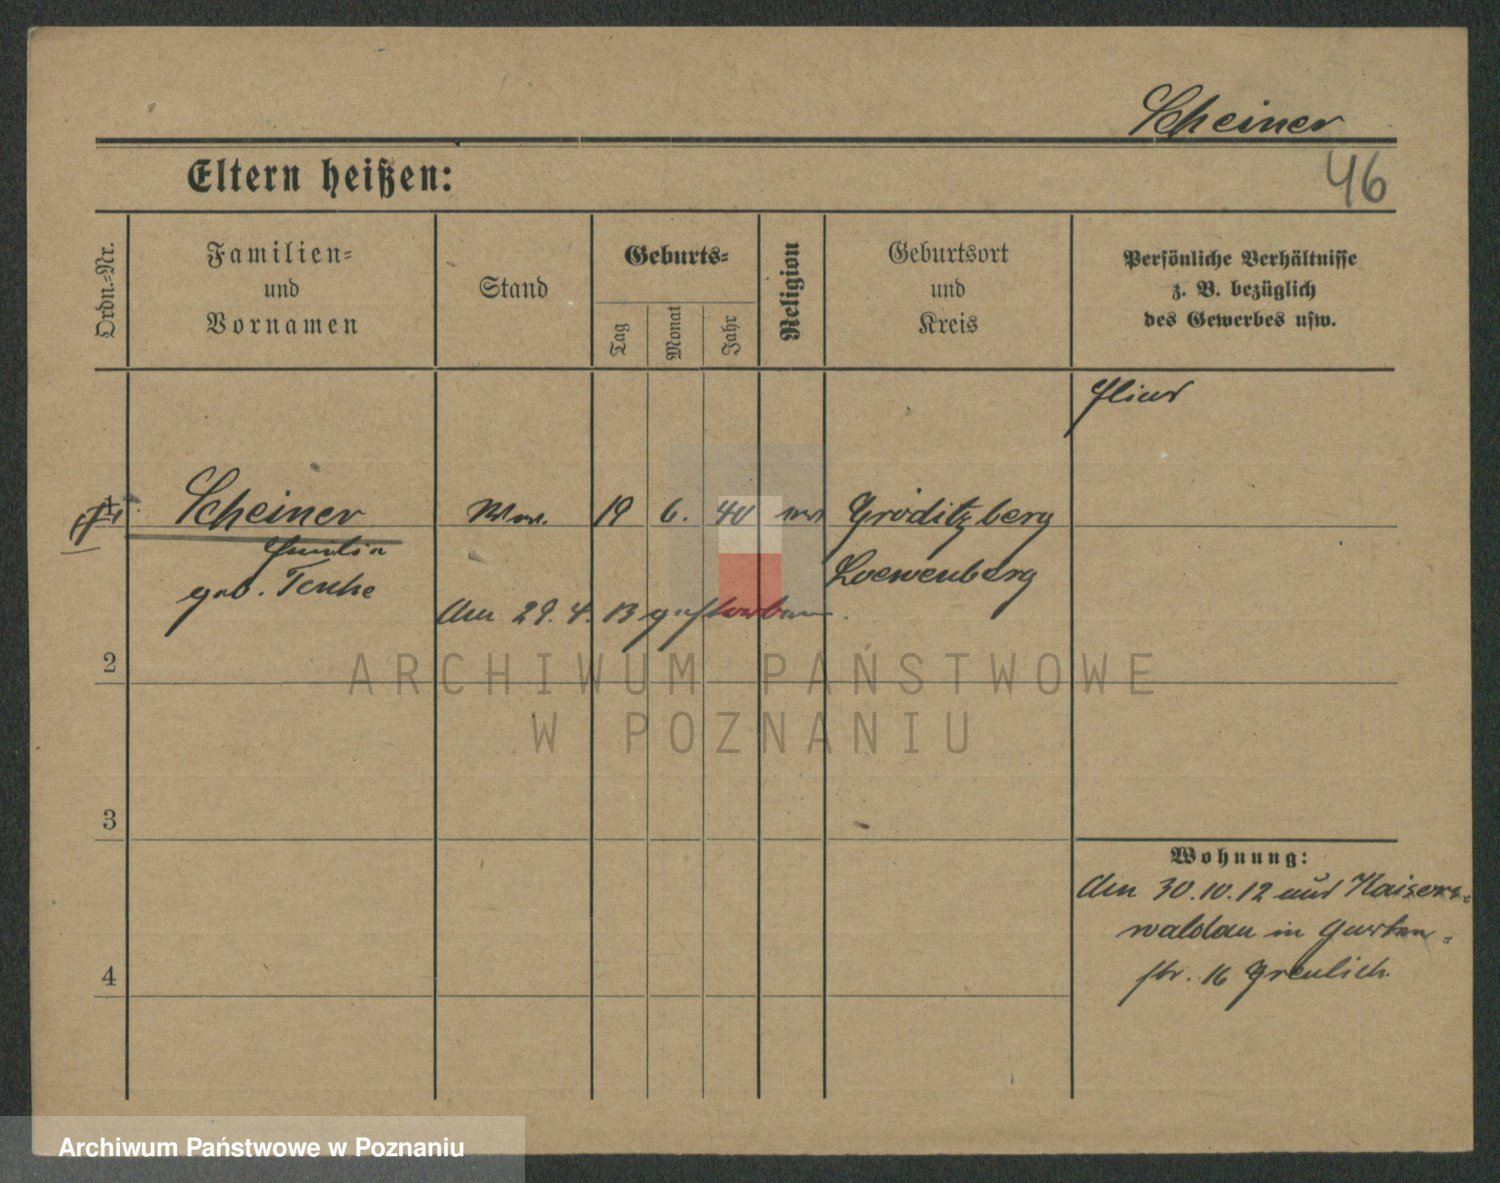 Scheiner
Eltern heißen:
46
Ordn.-Nr.
Familien-
und
Vornamen
Stand
Geburts-
Tag
Monat
Jahr
Religion
Geburtsort
und
Kreis
Persönliche Verhältnisse
z. B. bezüglich
des Gewerbes usw.
1
Scheiner
Ww.
19
6.
40
Gröditzberg
geb.
Loewenberg
Am 29. 4. 13 gestorben.
2
ARCHIWUM PAŃSTWOWE
W POZNANIU
3
Wohnung:
Am 30.10.12 aus Kaisers-
waldau in Garten-
str. 16 Greulich
4
Archiwum Państwowe w Poznaniu